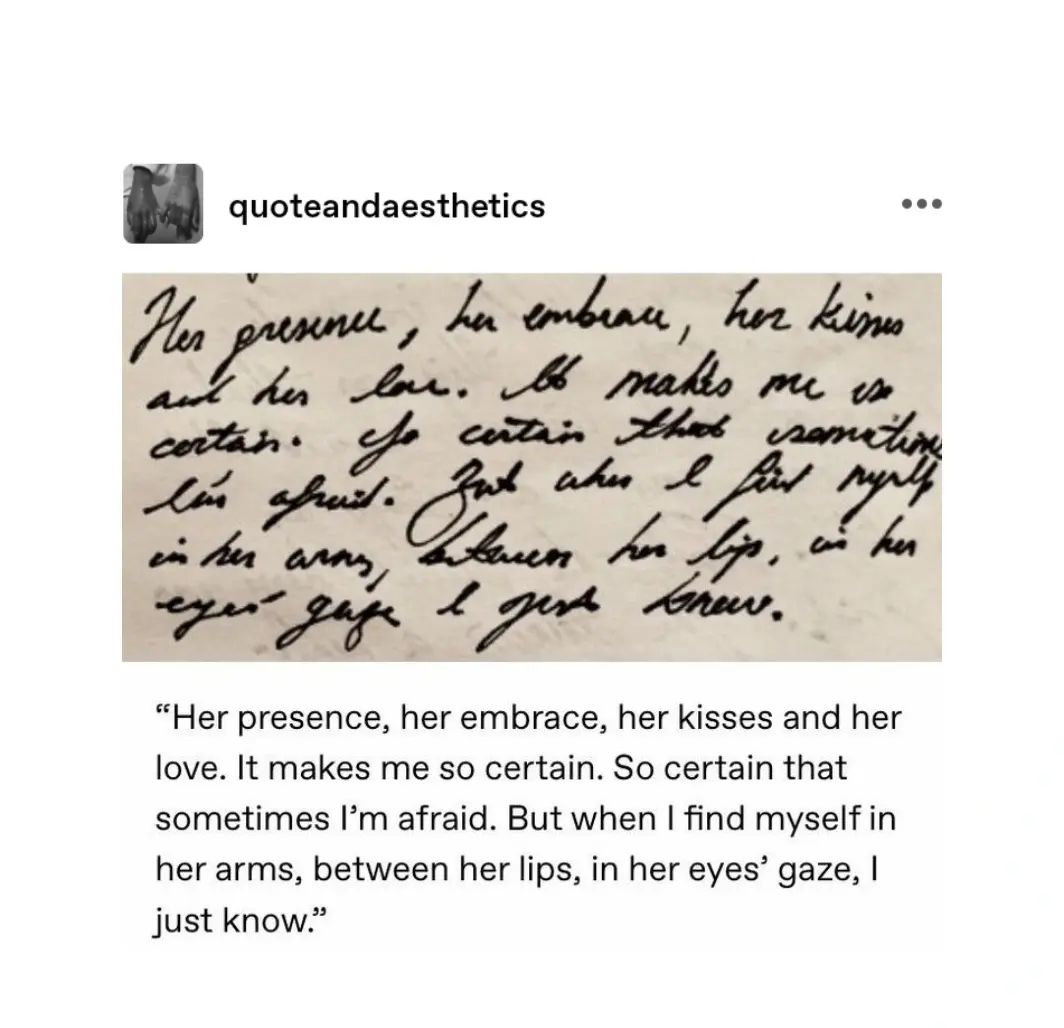 quoteandaesthetics
Her presence, her embrace, her kisses
and her love. It makes me so
certain. So certain that sometimes
I'm afraid. But when I find myself
in her arms, between her lips, in her
eyes' gaze I just know.
“Her presence, her embrace, her kisses and her
love. It makes me so certain. So certain that
sometimes I’m afraid. But when I find myself in
her arms, between her lips, in her eyes’ gaze, I
just know.”